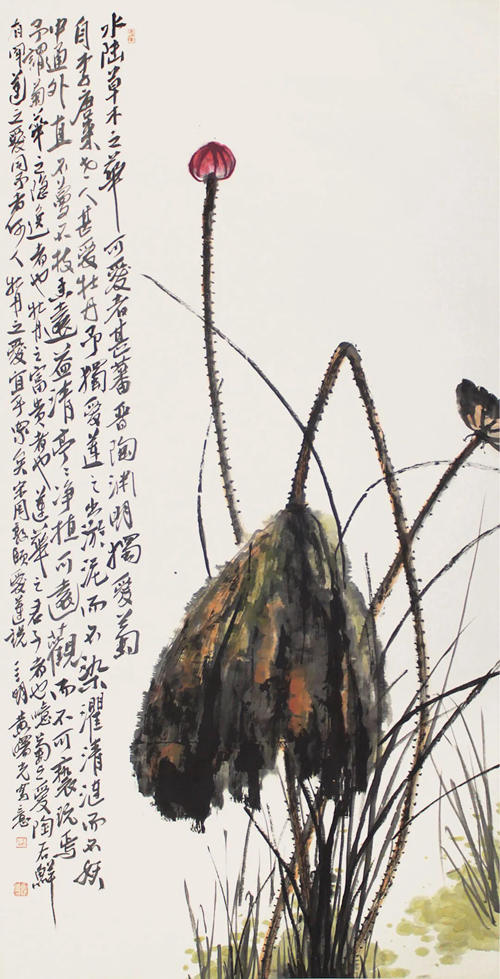 水陆草木之華可愛者甚蕃晋陶渊明獨愛菊
自李唐来世人甚爱牡丹予獨爱蓮之出淤泥而不染濯清涟而不妖
中通外直不蔓不枝香遠益清亭々净植可遠觀而不可褻玩焉
予謂菊華之隐逸者也牡丹之富贵者也蓮華之君子者也噫菊之爱陶后鮮
有闻蓮之愛同予者何人牡丹之愛宜乎衆矣宋周敦頤愛蓮说 三明黄曙光写意